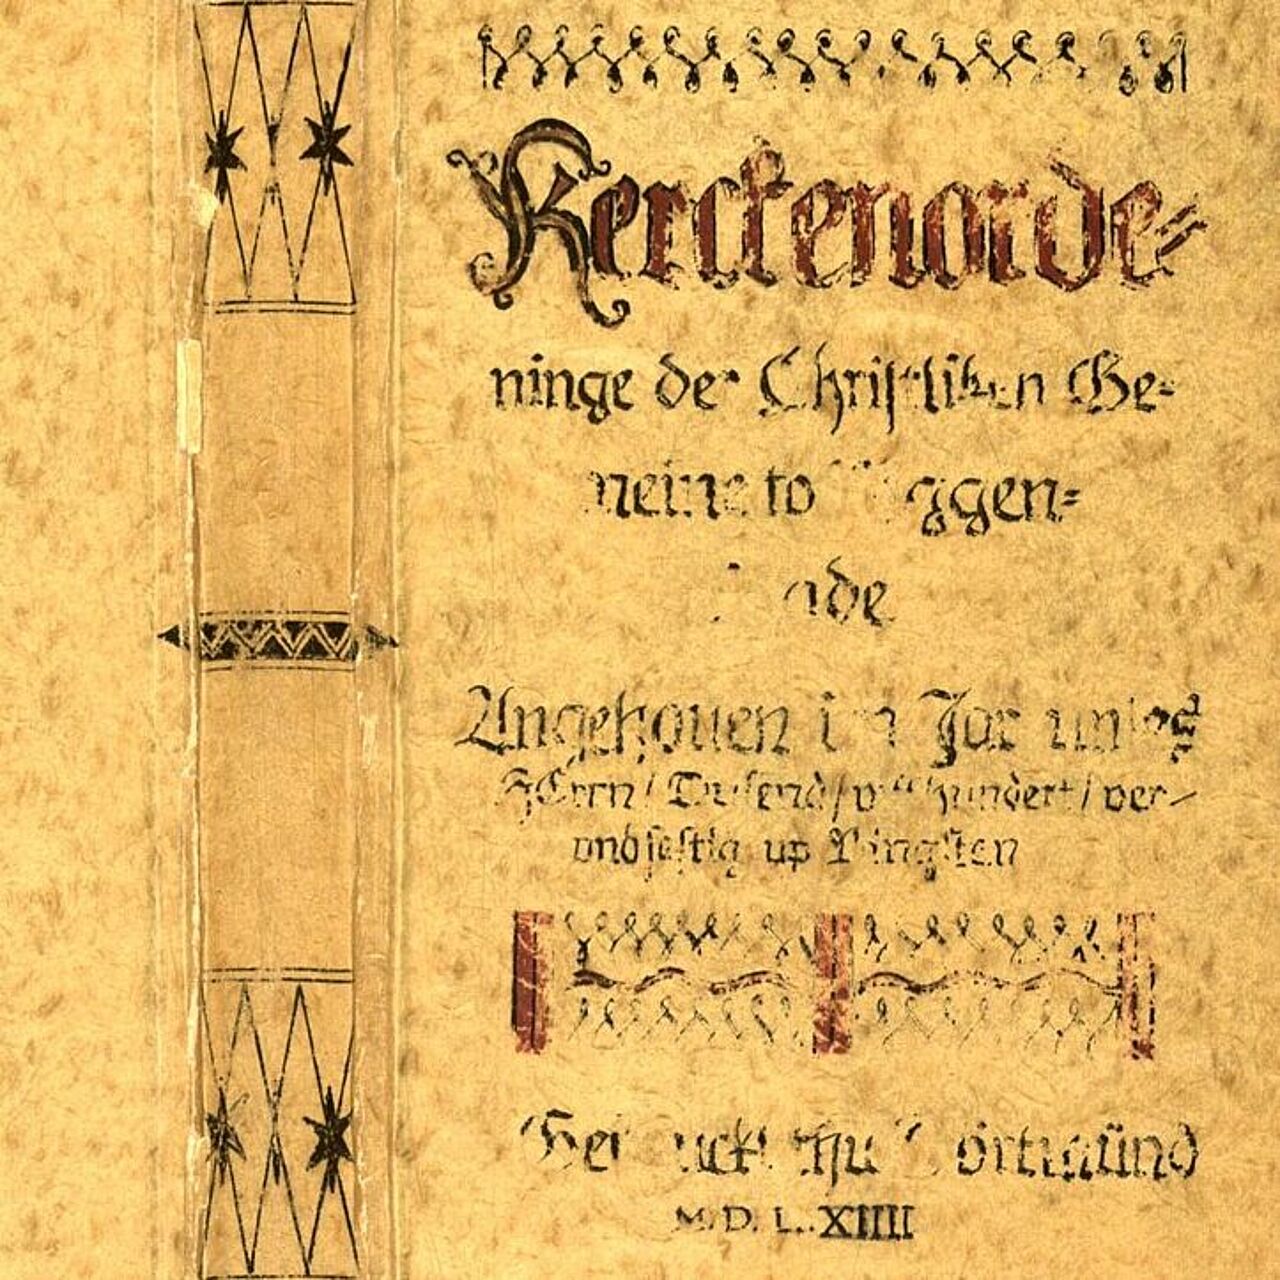 Kerckenorde=
ninge der Christliken Ge=
meine to
Angehouen im Jar unses
HErrn / Dusent / hundert / ver
vndsestig up Pingsten
Gedruckt thu Dörtmünd
M. D. L. XIIII